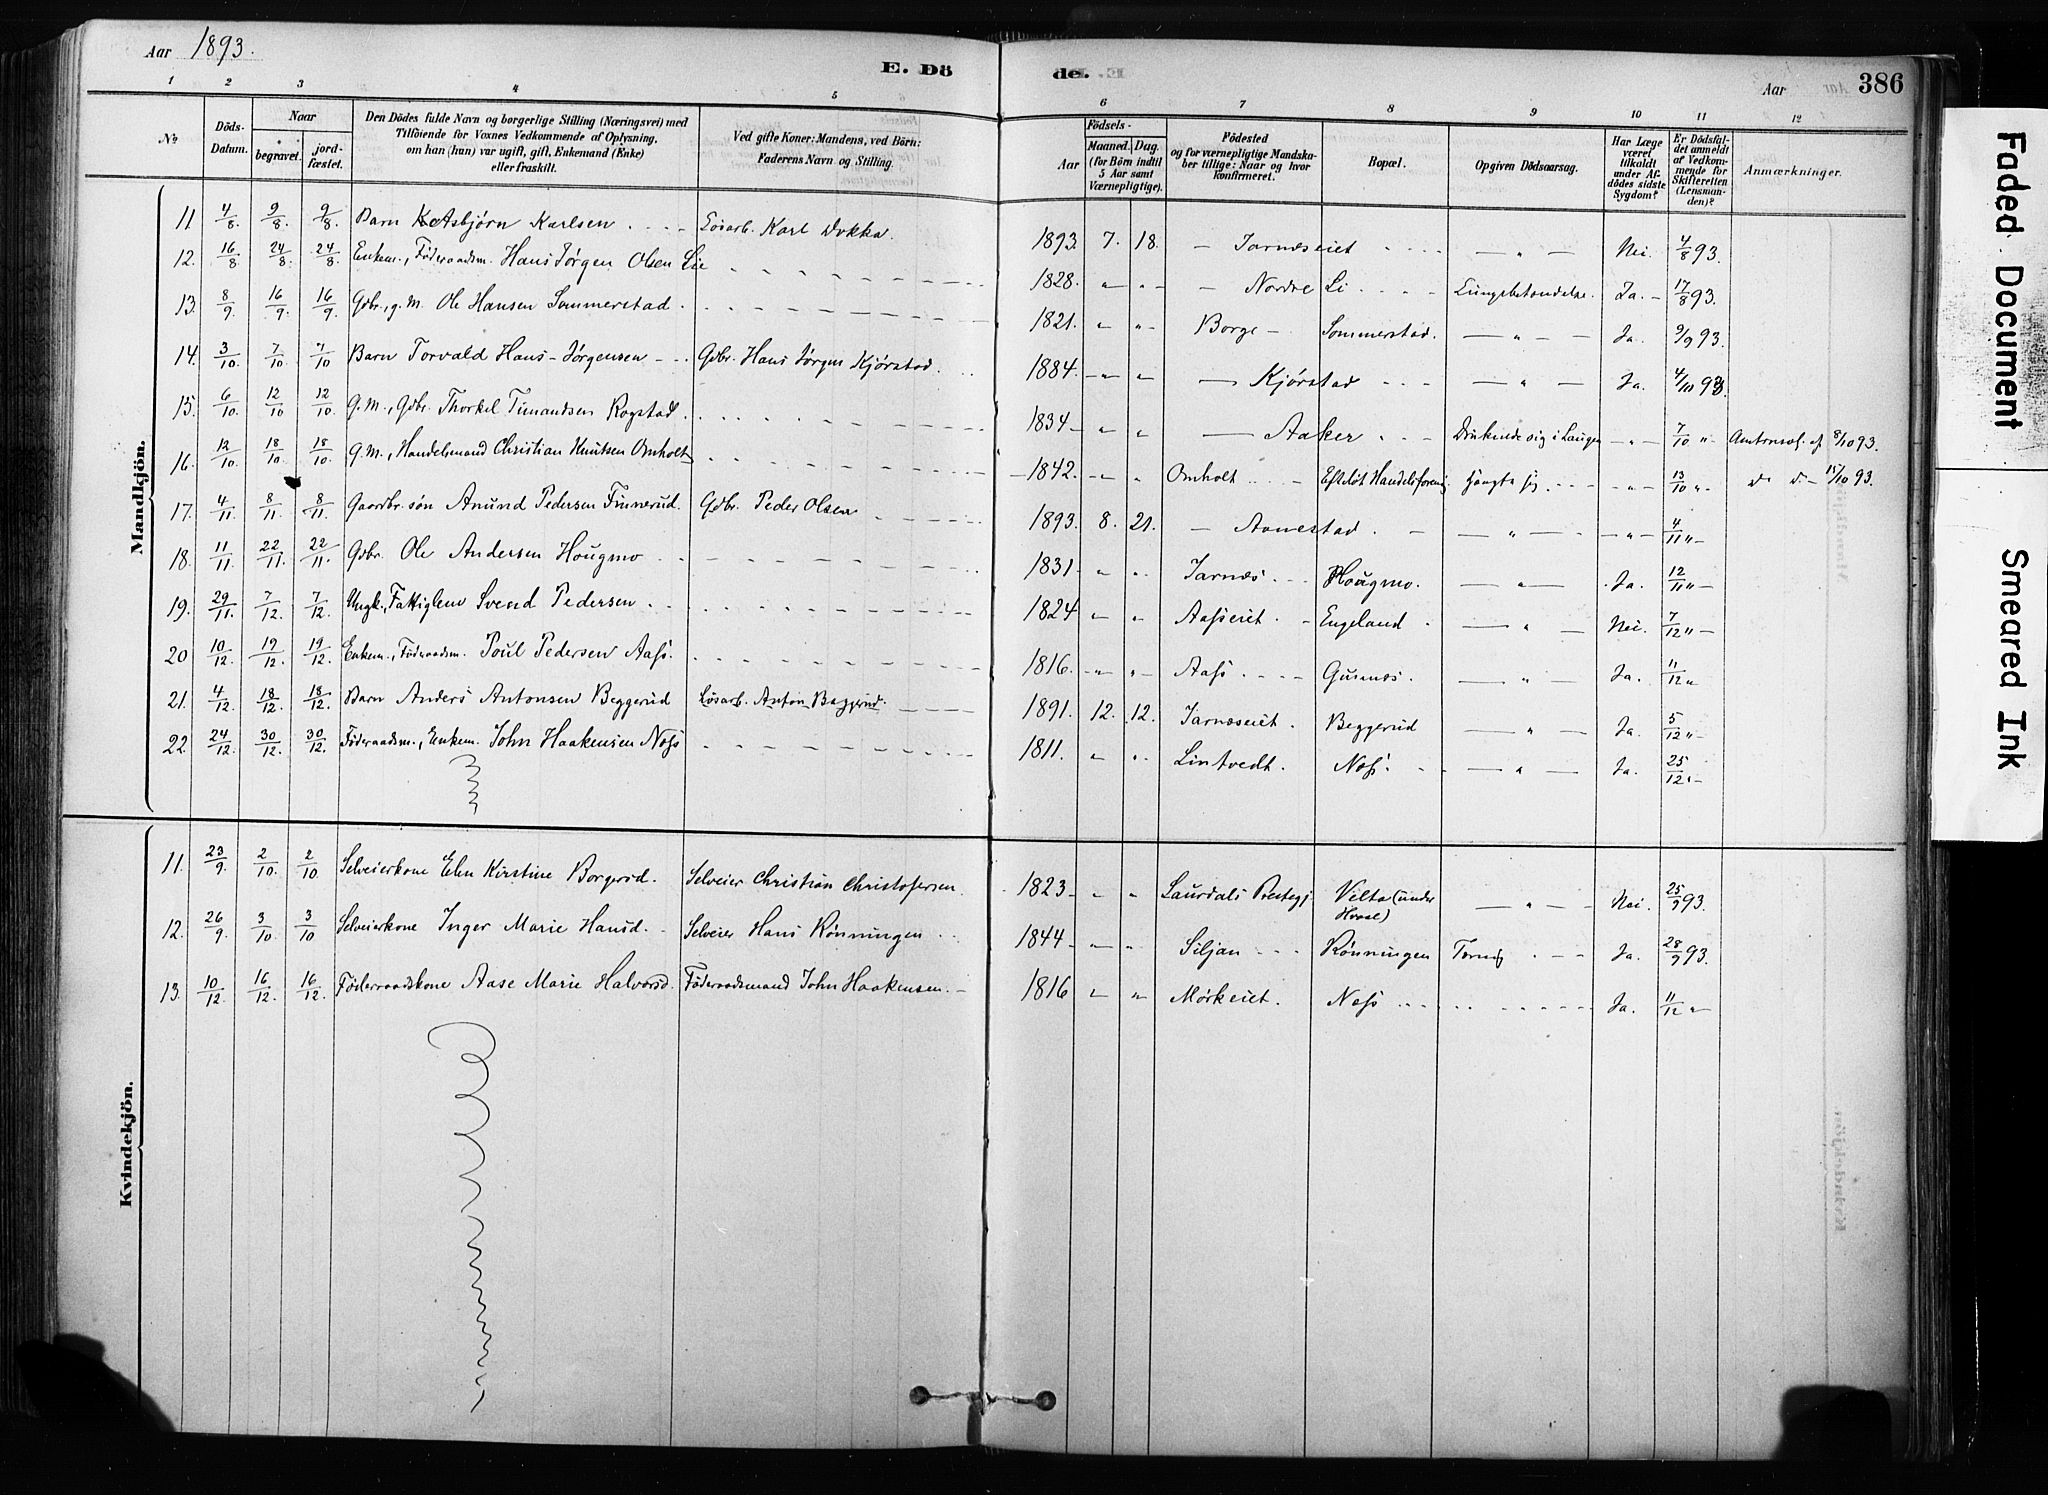 Aar 1893.
E. Dö de.
Aar 386
1 2 3 4 5 6 7 8 9 10 11 12
No Döds-Datum. Naar begravet. jordfæstet. Den Dödes fulde Navn og borgerlige Stilling (Næringsvei) med Tilföiende for Voxnes Vedkommende af Oplysning, om han (hun) var ugift, gift, Enkemand (Enke) eller fraskilt. Ved gifte Koner: Mandens, ved Börn: Faderens Navn og Stilling. Födsels- Aar Maaned. Dag. (for Börn indtil 5 Aar samt Værnepligtige). Födested og for værnepligtige Mandskaber tillige: Naar og hvor konfirmeret. Bopæl. Opgiven Dödsaarsag. Har Læge været tilkaldt under Afdödes sidste Sygdom? Er Dödsfaldet anmeldt af Vedkommende for Skifteretten (Lensmanden)? Anmærkninger.
Mandkjön.
11 4/8 9/8 9/8 Barn Asbjørn Karlsen Løsarb. Karl Dokka. 1893 7. 18. Jarnæseiet — " — Nei. 4/8 93.
12. 16/8 24/8 24/8 Enkem., Föderaadsm. Hans Jørgen Olsen Lie 1828. " " Nordre Li Lungebetændelse. Ja. 17/8 93.
13. 8/9 16/9 16/9 Gdbr., g. M. Ole Hansen Sommerstad. 1821. " " Borge Sommerstad. — " — Ja. 9/9 93.
14. 3/10 7/10 7/10 Barn Torvald Hans-Jørgensen Gdbr. Hans Jørgen Kjørstad. 1884. " " Kjørstad — " — Ja. 4/10 93.
15. 6/10 12/10 12/10 G. M., Gdbr. Thorkel Timandsen Rogstad. 1834 " " Aaker Druknede sig i Laugen " 7/10 " 8/10 93.
16. 12/10 18/10 18/10 G. M., Handelsmand Christian Knutsen Omholt 1842. " " Omholt Efteløt Handelsforenig Hængte sig " 13/10 " d d 15/10 93.
17. 4/11 8/11 8/11 Gaardbr. søn Anund Pedersen Finnerud. Gdbr. Peder Olsen 1893. 8. 21. Aanestad — " — " 4/11 "
18. 11/11 22/11 22/11 Gdbr. Ole Andersen Hougmo 1831. " " Jarnæs Hougmo. — " — Ja. 12/11 "
19. 29/11 7/12 7/12 Ungk., Fattiglem Svend Pedersen 1824 " " Aasseiet. Engeland — " — Nei. 7/12 "
20 10/12 19/12 19/12 Enkem., Föderaadsm. Poul Pedersen Aass. 1816. " " Aass Gusnæs. — " — Ja. 11/12 "
21. 4/12 18/12 18/12 Barn Anders Antonsen Beggerud Løsarb. Anton Beggerud. 1891. 12. 12. Jarnæseiet. Beggerud — " — Ja. 5/12 "
22. 24/12. 30/12. 30/12. Föderaadsm., Enkem. John Haakensen Næss 1811. " " Lintvedt. Næss. — " — Ja. 25/12 "
Kvindekjön.
11. 23/9. 2/10 2/10 Selveierkone Elen Kirstine Borgersd. Selveier Christian Christofersen 1823 " " Laurdals Prestegj. Velta (under Hvaal) — " — Nei. 25/9 93.
12. 26/9 3/10 3/10 Selveierkone Inger Marie Hansd. Selveier Hans Rønningen 1844 " " Siljan Rønningen Ja. 28/9 93.
13. 10/12 16/12 16/12 Föderaadskone Aase Marie Halvorsd. Föderaadsmand John Haakensen. 1816 " " Mørkeiet. Næss Ja. 11/12 "
Faded Document
Smeared Ink